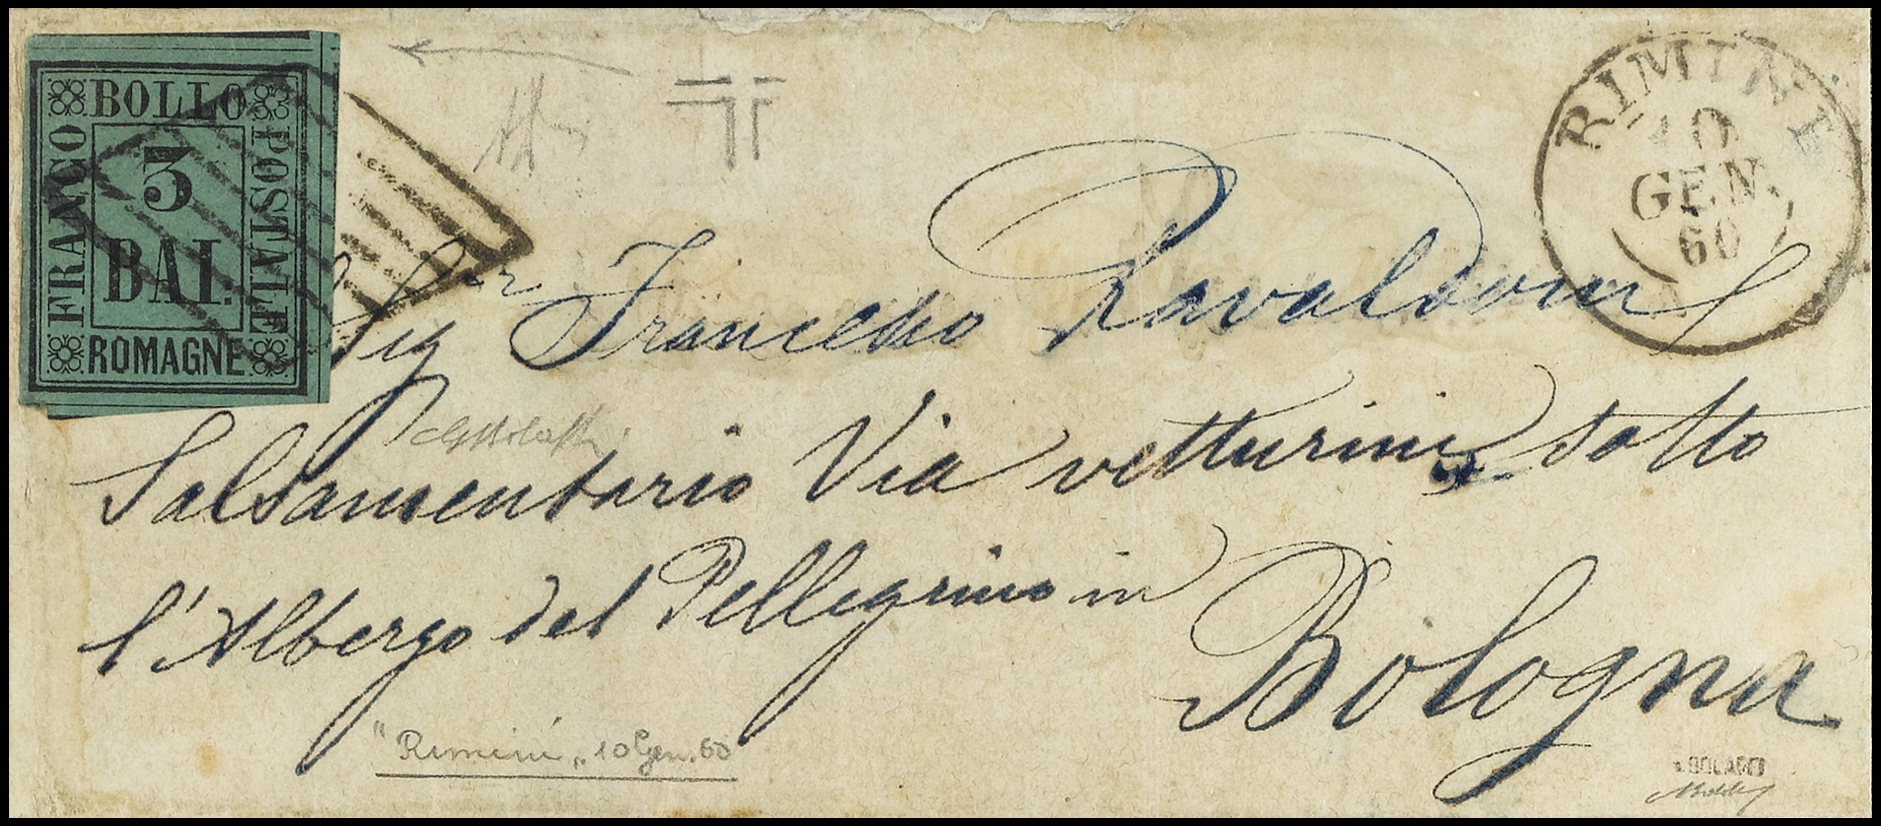 BOLLO
FRANCO
POSTALE
3
BAI.
ROMAGNE
RIMINI
10
GEN.
60
Sig Francesco Ravaldoni
Salsamentario Via vetturini sotto
l'Albergo del Pellegrino in
Bologna
"Rimini„ 10 Gen. 60